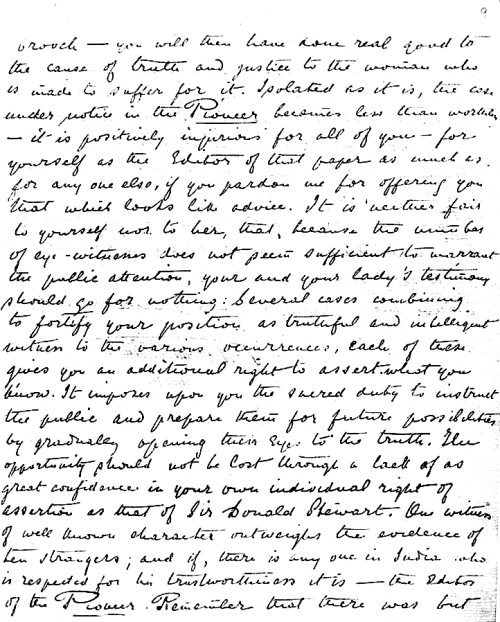 9
brooch — you will then have done real good to
the cause of truth and justice to the woman who
is made to suffer for it. Isolated as it is, the case
under notice in the Pioneer becomes less than worthless
— it is positively injurious for all of you — for
yourself as the Editor of that paper as much as
for any one else, if you pardon me for offering you
that which looks like advice. It is neither fair
to yourself nor to her, that, because the number
of eye-witnesses does not seem sufficient to warrant
the public attention, your and your lady's testimony
should go for nothing. Several cases combining
to fortify your position as truthful and intelligent
witness to the various occurrences, each of these
gives you an additional right to assert what you
know. It imposes upon you the sacred duty to instruct
the public and prepare them for future possibilities
by gradually opening their eyes to the truth. The
opportunity should not be lost through a lack of as
great confidence in your own individual right of
assertion as that of Sir Donald Stewart. One witness
of well known character outweighs the evidence of
ten strangers; and if, there is any one in India who
is respected for his trustworthiness it is — the Editor
of the Pioneer. Remember that there was but